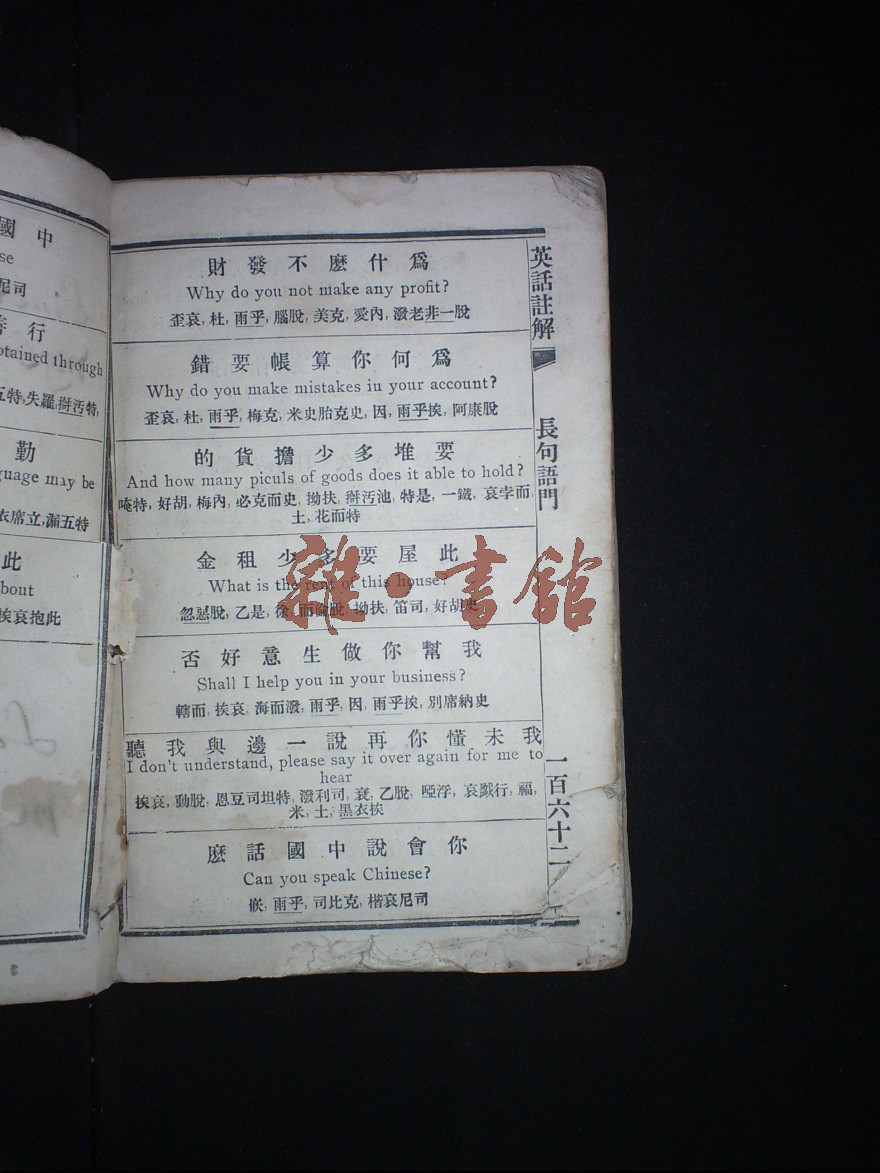 中國
尼司
行善
otained through
五特,失羅,搿汚特,
勤
guage may be
衣席立,漏五特
此
bout
挨哀抱此
英話註解
長句語門
一百六十二
爲什麽不發財
Why do you not make any profit?
歪哀,杜,雨乎,腦脫,美克,愛內,潑老非一脫
爲何你算帳要錯
Why do you make mistakes iu your account?
歪哀,杜,雨乎,梅克,米史胎克史,因,雨乎挨,阿康脫
要堆多少擔貨的
And how many piculs of goods does it able to hold?
唵特,好胡,梅內,必克而史,拗扶,搿汚池,特是,一鐵,哀孛而
土,花而特
此屋要多少租金
What is the rent of this house?
乙是,徐,而倫脫,拗扶,笛司,好胡史
我幫你做生意好否
Shall I help you in your business?
轄而,挨哀,海而潑,雨乎,因,雨乎挨,別席納史
我未懂你再說一邊與我聽
I don't understand, please say it over again for me to
hear
挨哀,動脫,恩豆司坦特,潑利司,衰,乙脫,啞浮,哀戤行,福,
米,土,黑衣挨
你會說中國話麽
Can you speak Chinese?
嵌,雨乎,司比克,楷哀尼司
雜·書館